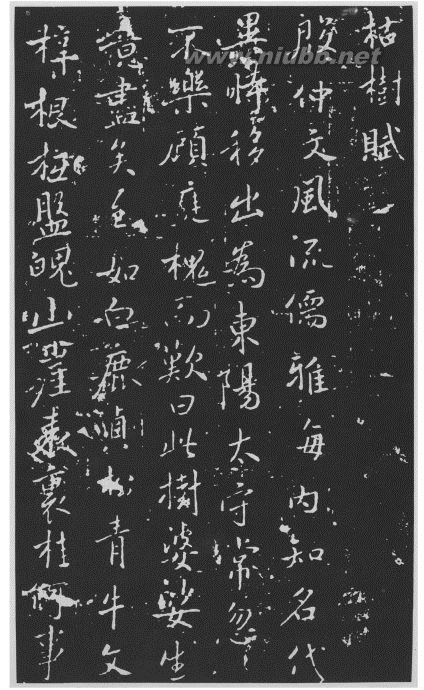 枯樹賦
殷仲文風流儒雅每内知名代
異時移出為東陽大守常忽〻
不樂顧庭槐而歎曰此樹婆娑生
意盡矣至如白鹿貞松青牛文
梓根柢盤魄山崖表裏桂何事
www.niubb.net